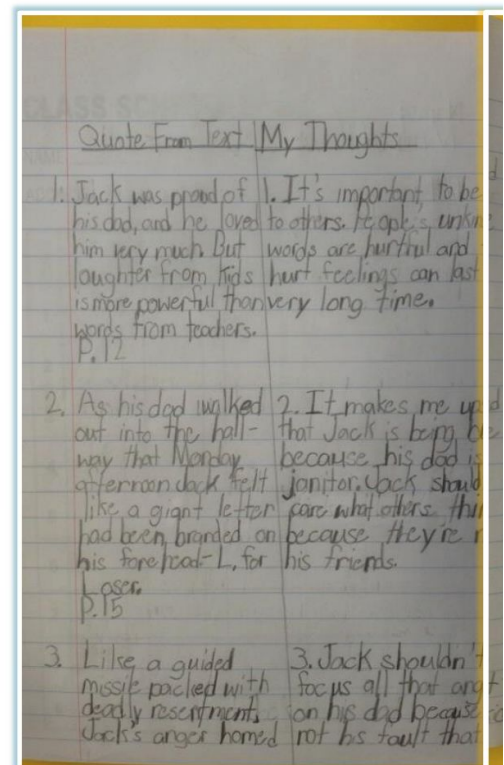 Quote From Text | My Thoughts
1. Jack was proud of
his dad, and he loved
him very much. But
laughter from kids
is more powerful than
words from teachers.
P. 12
1. It's important to be
to others. People's
words are hurtful and
hurt feelings can last
very long time.
2. As his dad walked
out into the hall-
way that Monday
afternoon Jack felt
like a giant letter
had been branded on
his forehead-L, for
Loser.
P. 15
2. It makes me
that Jack is being
because his dad is
janitor. Jack should
care what others
because they're
his friends.
3. Like a guided
missile packed with
deadly resentment,
Jack's anger homed
3. Jack shouldn't
focus all that
on his dad because
not his fault that